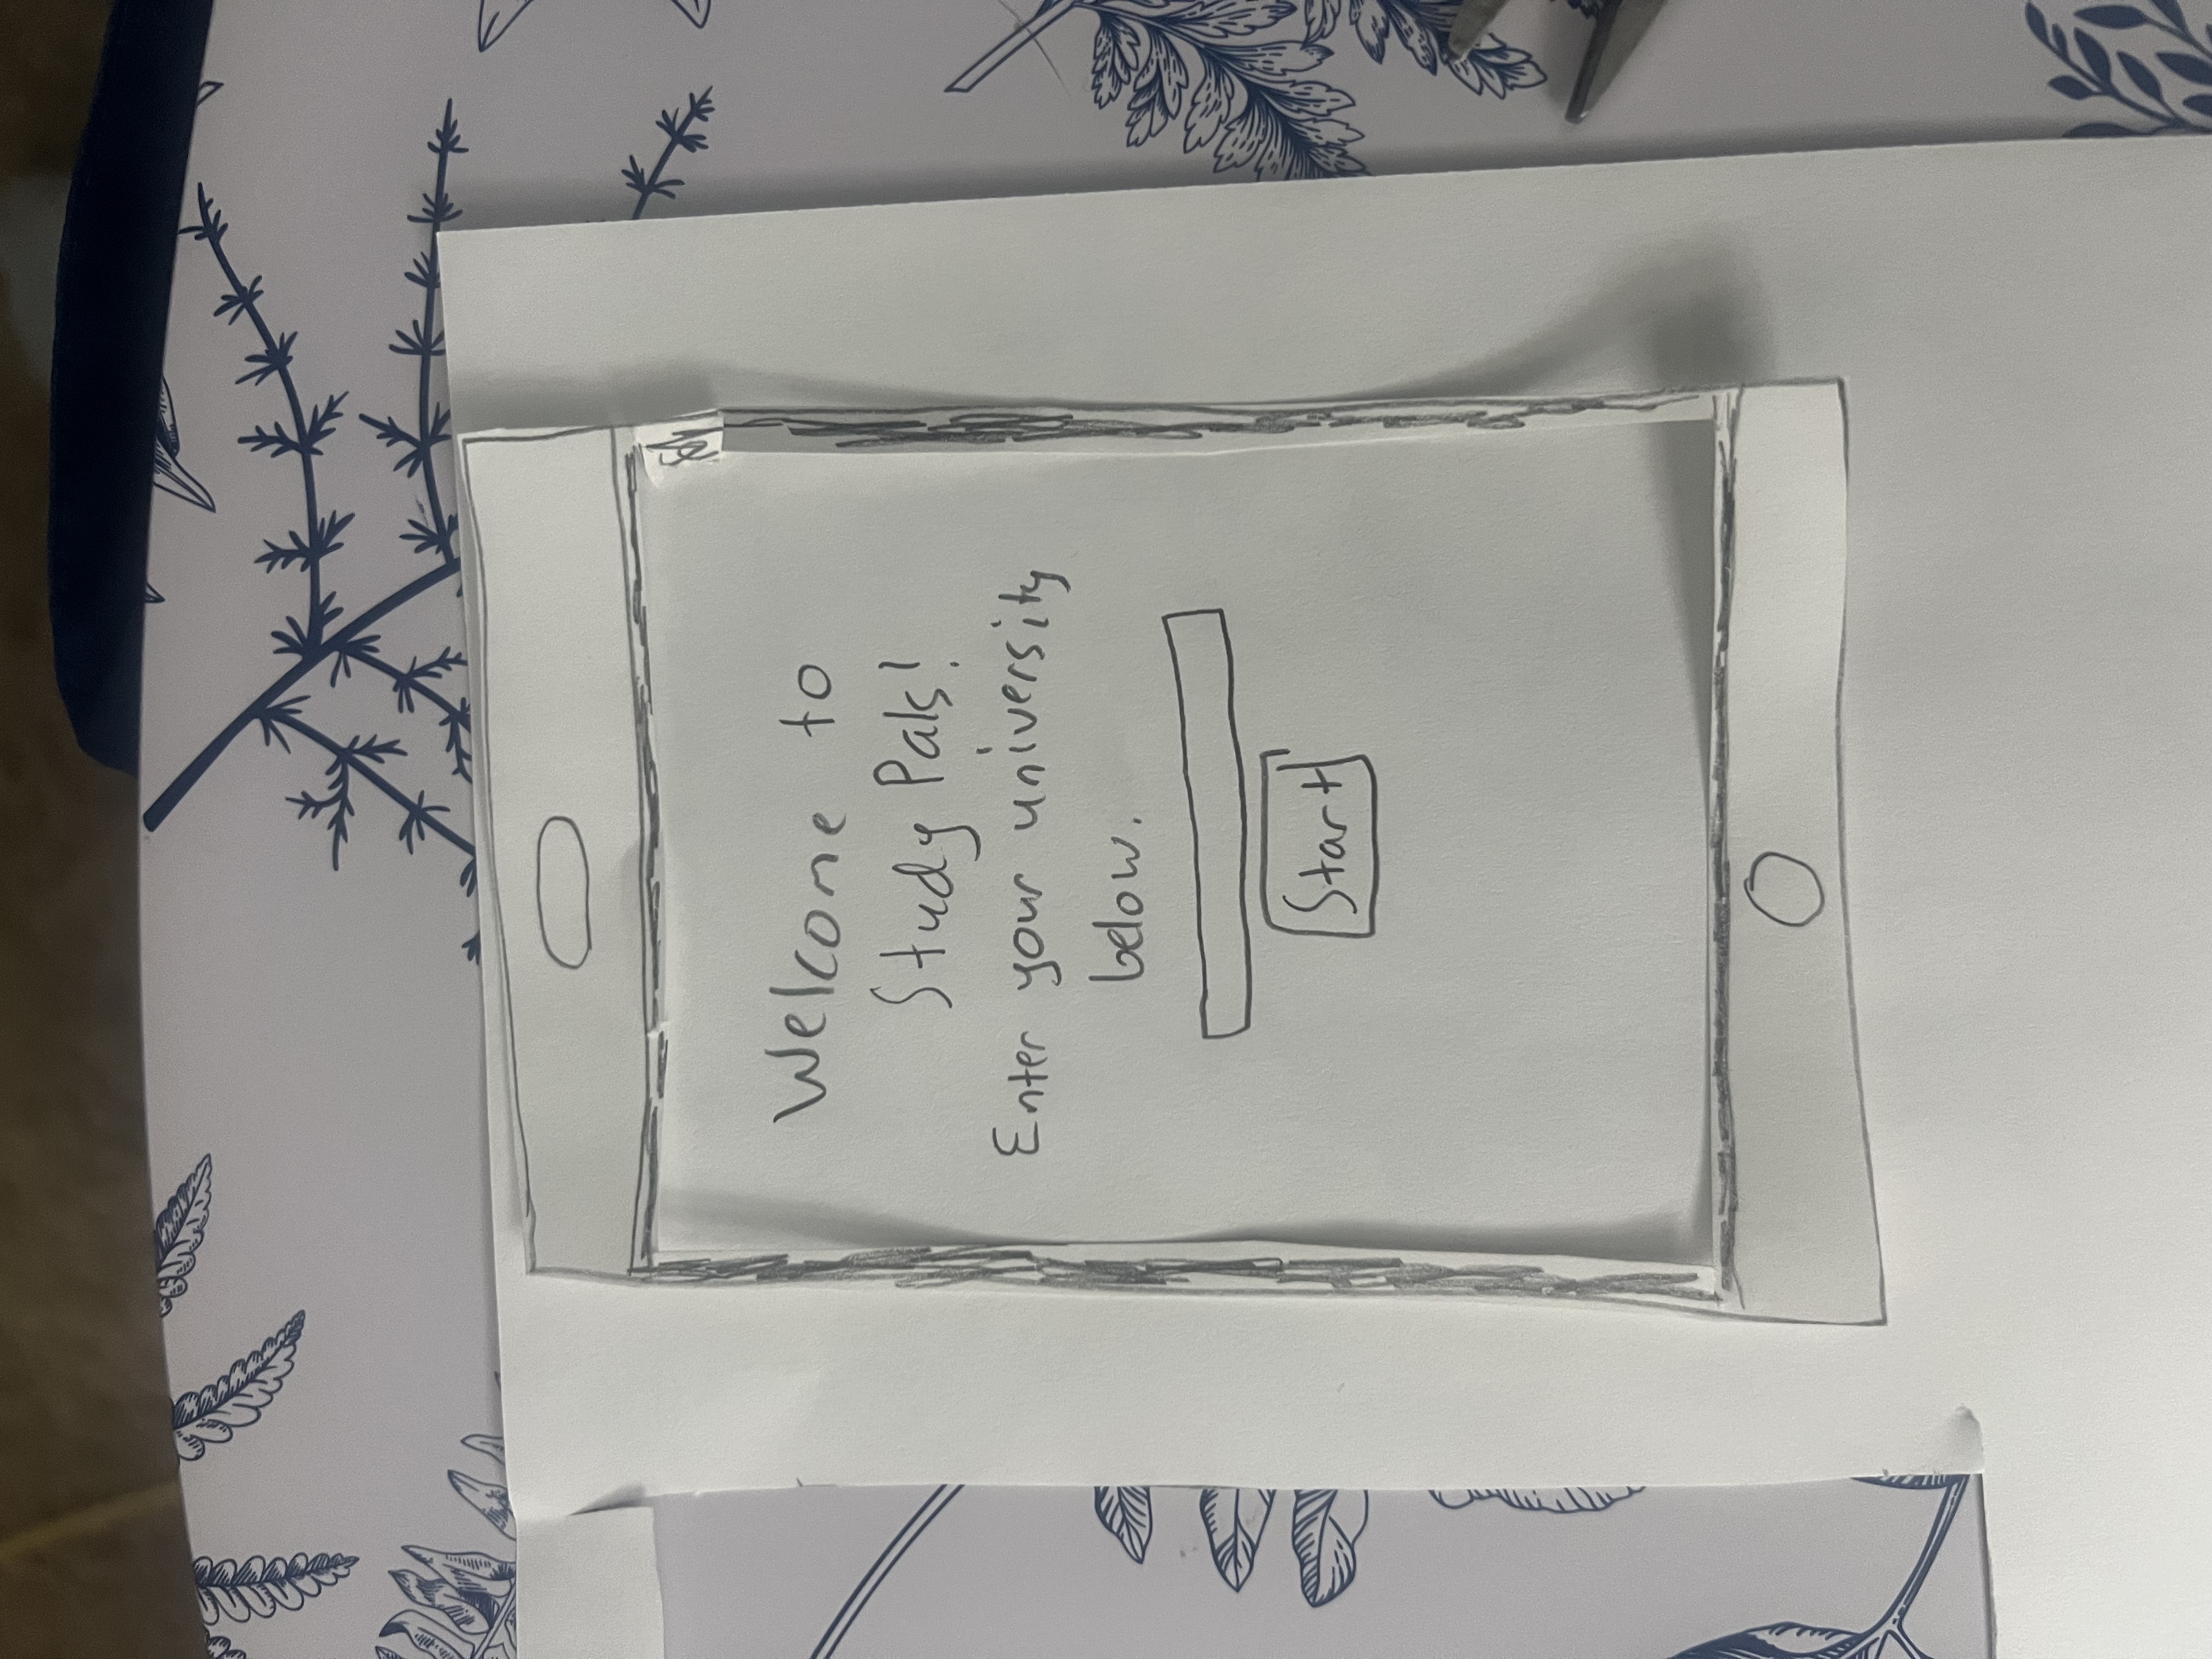 Welcome to
Study Pals!
Enter your university
below.
Start